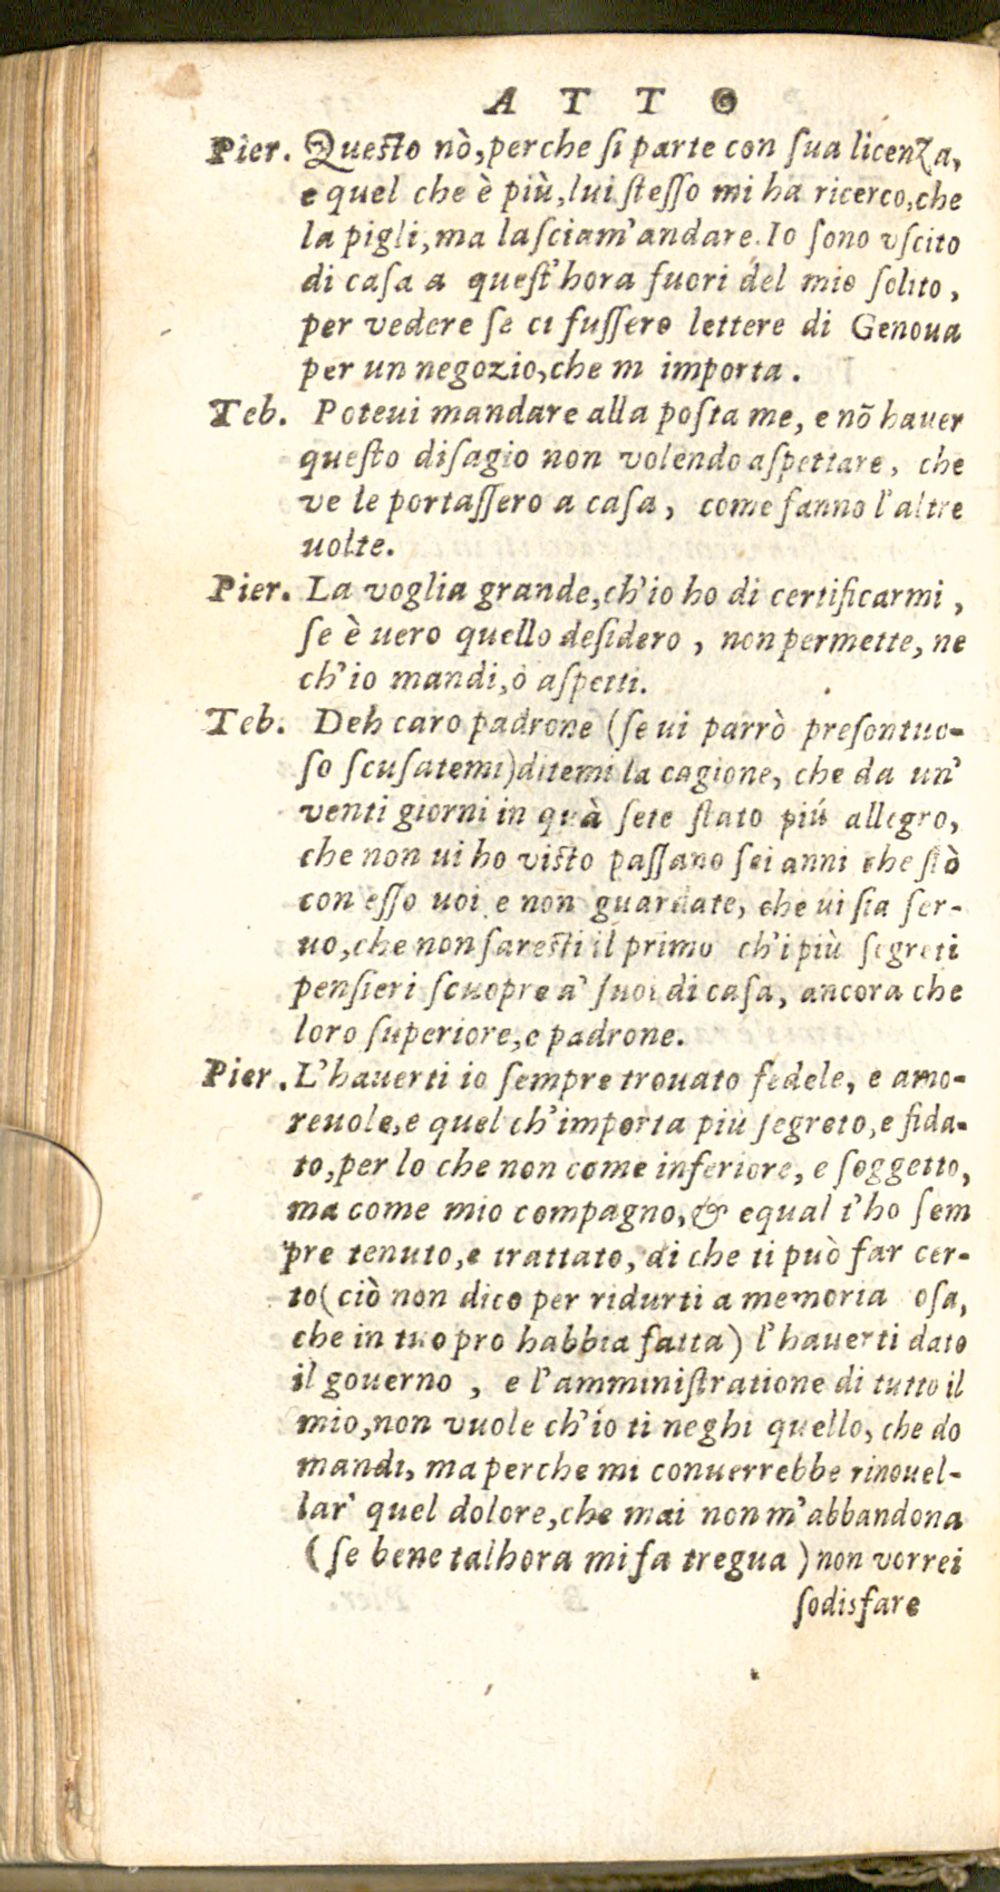 ATTO
Pier. Questo nò, perche si parte con sua licenza,
e quel che è più, lui stesso mi ha ricerco, che
la pigli, ma lasciam'andare. Io sono vscito
di casa a quest'hora fuori del mio solito,
per vedere se ci fussero lettere di Genoua
per un negozio, che m importa.
Teb. Poteui mandare alla posta me, e nõ hauer
questo disagio non volendo aspettare, che
ve le portassero a casa, come fanno l'altre
uolte.
Pier. La voglia grande, ch'io ho di certificarmi,
se è uero quello desidero, non permette, ne
ch'io mandi, ò aspetti.
Teb. Deh caro padrone (se ui parrò presontuo-
so scusatemi) ditemi la cagione, che da un'
venti giorni in quà sete stato piú allegro,
che non ui ho visto passano sei anni che stò
con esso uoi e non guardate, che ui sia ser-
uo, che non saresti il primo ch'i più segreti
pensieri scuopre a' suoi di casa, ancora che
loro superiore, e padrone.
Pier. L'hauerti io sempre trouato fedele, e amo-
reuole, e quel ch'importa più segreto, e fida-
to, per lo che non come inferiore, e soggetto,
ma come mio compagno, & equal t'ho sem
pre tenuto, e trattato, di che ti può far cer-
to (ciò non dico per ridurti a memoria osa,
che in tuo pro habbia fatta) l'hauerti dato
il gouerno, e l'amministratione di tutto il
mio, non vuole ch'io ti neghi quello, che do
mandi, ma perche mi conuerrebbe rinouel-
lar' quel dolore, che mai non m'abbandona
(se bene talhora mi fa tregua) non vorrei
sodisfare